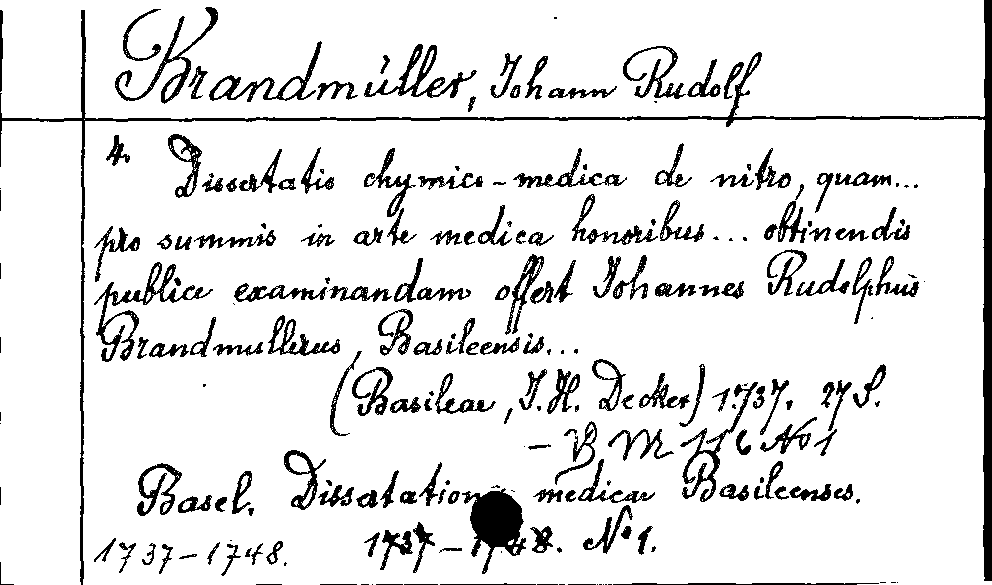 Brandmüller, Johann Rudolf
4. Dissertatio chymico-medica de nitro, quam...
pro summis in arte medica honoribus... obtinendis
publice examinandam offert Johannes Rudolphus
Brandmullerus, Basileensis...
(Basileae, J. H. Decker) 1737. 27 S.
- B M 116 No 1
Basel. Dissertationes medicae Basileenses.
1737-1748. 1737-1748. No 1.